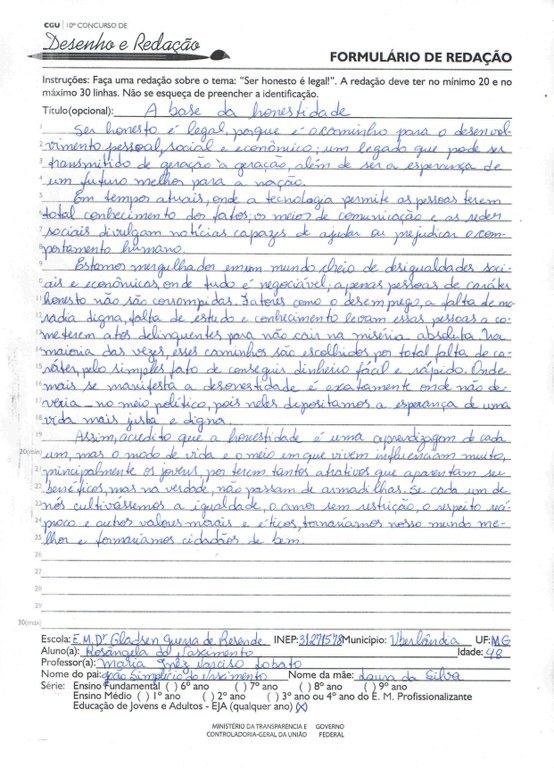 CGU | 10º CONCURSO DE
Desenho e Redação
FORMULÁRIO DE REDAÇÃO
Instruções: Faça uma redação sobre o tema: "Ser honesto é legal!". A redação deve ter no mínimo 20 e no
máximo 30 linhas. Não se esqueça de preencher a identificação.
Título(opcional): A base da honestidade
1 Ser honesto é legal, porque é o caminho para o desenvol-
2 vimento pessoal, social e econômico; um legado que pode ser
3 transmitido de geração à geração, além de ser a esperança de
4 um futuro melhor para a nação.
5 Em tempos atuais, onde a tecnologia permite as pessoas terem
6 total conhecimento dos fatos, os meios de comunicação e as redes
7 sociais divulgam notícias capazes de ajudar ou prejudicar o com-
8 portamento humano.
9 Estamos mergulhados em um mundo cheio de desigualdades soci-
10 ais e econômicas, onde tudo é negociável, apenas pessoas de caráter
11 honesto não são corrompidas. Fatores como o desemprego, a falta de mo-
12 radia digna, falta de estudo e conhecimento levam essas pessoas a co-
13 meterem atos delinquentes para não cair na miséria absoluta. Na
14 maioria das vezes, esses caminhos são escolhidos por total falta de ca-
15 ráter, pelo simples fato de conseguir dinheiro fácil e rápido. Onde
16 mais se manifesta a desonestidade é exatamente onde não de-
17 veria - no meio político, pois neles depositamos a esperança de uma
18 vida mais justa e digna.
19 Assim, acredito que a honestidade é uma aprendizagem de cada
20(min) um, mas o modo de vida e o meio em que vivem influenciam muito,
21 principalmente os jovens, por terem tantos atrativos que aparentam ser
22 benéficos, mas na verdade, não passam de armadilhas. Se cada um de
23 nós cultivássemos a igualdade, o amor sem restrição, o respeito recí-
24 proco e outros valores morais e éticos, tornaríamos nosso mundo me-
25 lhor e formaríamos cidadãos de bem.
26
27
28
29
30(máx)
Escola: E.M.Dr. Gladsen Guerra de Rezende INEP: 31271578 Município: Uberlândia UF: MG
Aluno(a): Rosângela do Nascimento Idade: 48
Professor(a): Maria Inêz Narciso Lobato
Nome do pai: João Simplício do Nascimento Nome da mãe: Laura da Silva
Série: Ensino Fundamental ( ) 6º ano ( ) 7º ano ( ) 8º ano ( ) 9º ano
Ensino Médio ( ) 1º ano ( ) 2º ano ( ) 3º ano ou 4º ano do E. M. Profissionalizante
Educação de Jovens e Adultos - EJA (qualquer ano) (X)
MINISTÉRIO DA TRANSPARÊNCIA E GOVERNO
CONTROLADORIA-GERAL DA UNIÃO FEDERAL